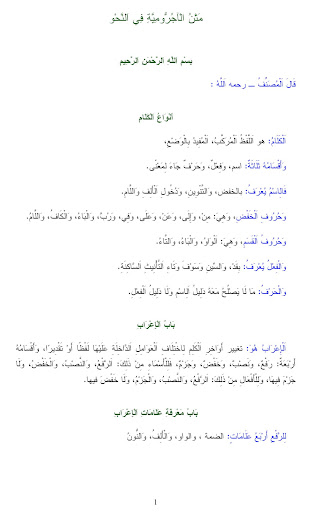 مَتْنُ الْآجُرُّومِيَّةِ فِي النَّحْوِ
بِسْمِ اللَّهِ الرَّحْمَنِ الرَّحِيمِ
قَالَ اَلْمُصَنِّفُ ـــ رحمه اَللَّهُ ـ :
أنْوَاعُ الْكَلَامِ
اَلْكَلَامُ: هو اَللَّفْظُ اَلْمُرَكَّبُ، اَلْمُفِيدُ بِالْوَضْعِ،
وَأَقْسَامُهُ ثَلَاثَةٌ: اِسْمٌ، وَفِعْلٌ، وَحَرْفٌ جَاءَ لِمَعْنًى.
فَالِاسْمُ يُعْرَفُ: بِالخَفْضِ، وَالتَّنْوِينِ، وَدُخُولِ اَلْأَلِفِ وَاللَّامِ.
وَحُرُوفِ اَلْخَفْضِ، وَهِيَ: مِنْ، وَإِلَى، وَعَنْ، وَعَلَى، وَفِي، وَرُبَّ، وَالْبَاءُ، وَالْكَافُ، وَاللَّامُ.
وَحُرُوفُ اَلْقَسَمِ، وَهِيَ: اَلْوَاوُ، وَالْبَاءُ، وَالتَّاءُ.
وَالْفِعْلُ يُعْرَفُ: بِقَدْ، وَالسِّينِ وَسَوْفَ وَتَاءِ التَّأْنِيثِ اَلسَّاكِنَةِ.
وَالْحَرْفُ: مَا لَا يَصْلُحُ مَعَهُ دَلِيلُ اَلِاسْمِ وَلَا دَلِيلُ اَلْفِعْلِ.
بَابُ اَلْإِعْرَابِ
اَلْإِعْرَابُ هُوَ: تغيير أَوَاخِرِ اَلْكَلِمِ لِاخْتِلَافِ اَلْعَوَامِلِ اَلدَّاخِلَةِ عَلَيْهَا لَفْظًا أَوْ تَقْدِيرًا، وَأَقْسَامُهُ
أَرْبَعَةٌ: رَفْعٌ، وَنَصْبٌ، وَخَفْضٌ، وَجَزْمٌ، فَلِلْأَسْمَاءِ مِنْ ذَلِكَ: اَلرَّفْعُ، وَالنَّصْبُ، وَالْخَفْضُ، وَلَا
جَزْمَ فِيهَا، وَلِلْأَفْعَالِ مِنْ ذَلِكَ: اَلرَّفْعُ، وَالنَّصْبُ، وَالْجَزْمُ، وَلَا خَفْضَ فِيهَا.
بَابُ مَعْرِفَةِ عَلَامَاتِ اَلْإِعْرَابِ
لِلرَّفْعِ أَرْبَعُ عَلَامَاتٍ: الضمة ، والواو، وَالْأَلِفُ، وَالنُّونُ
1